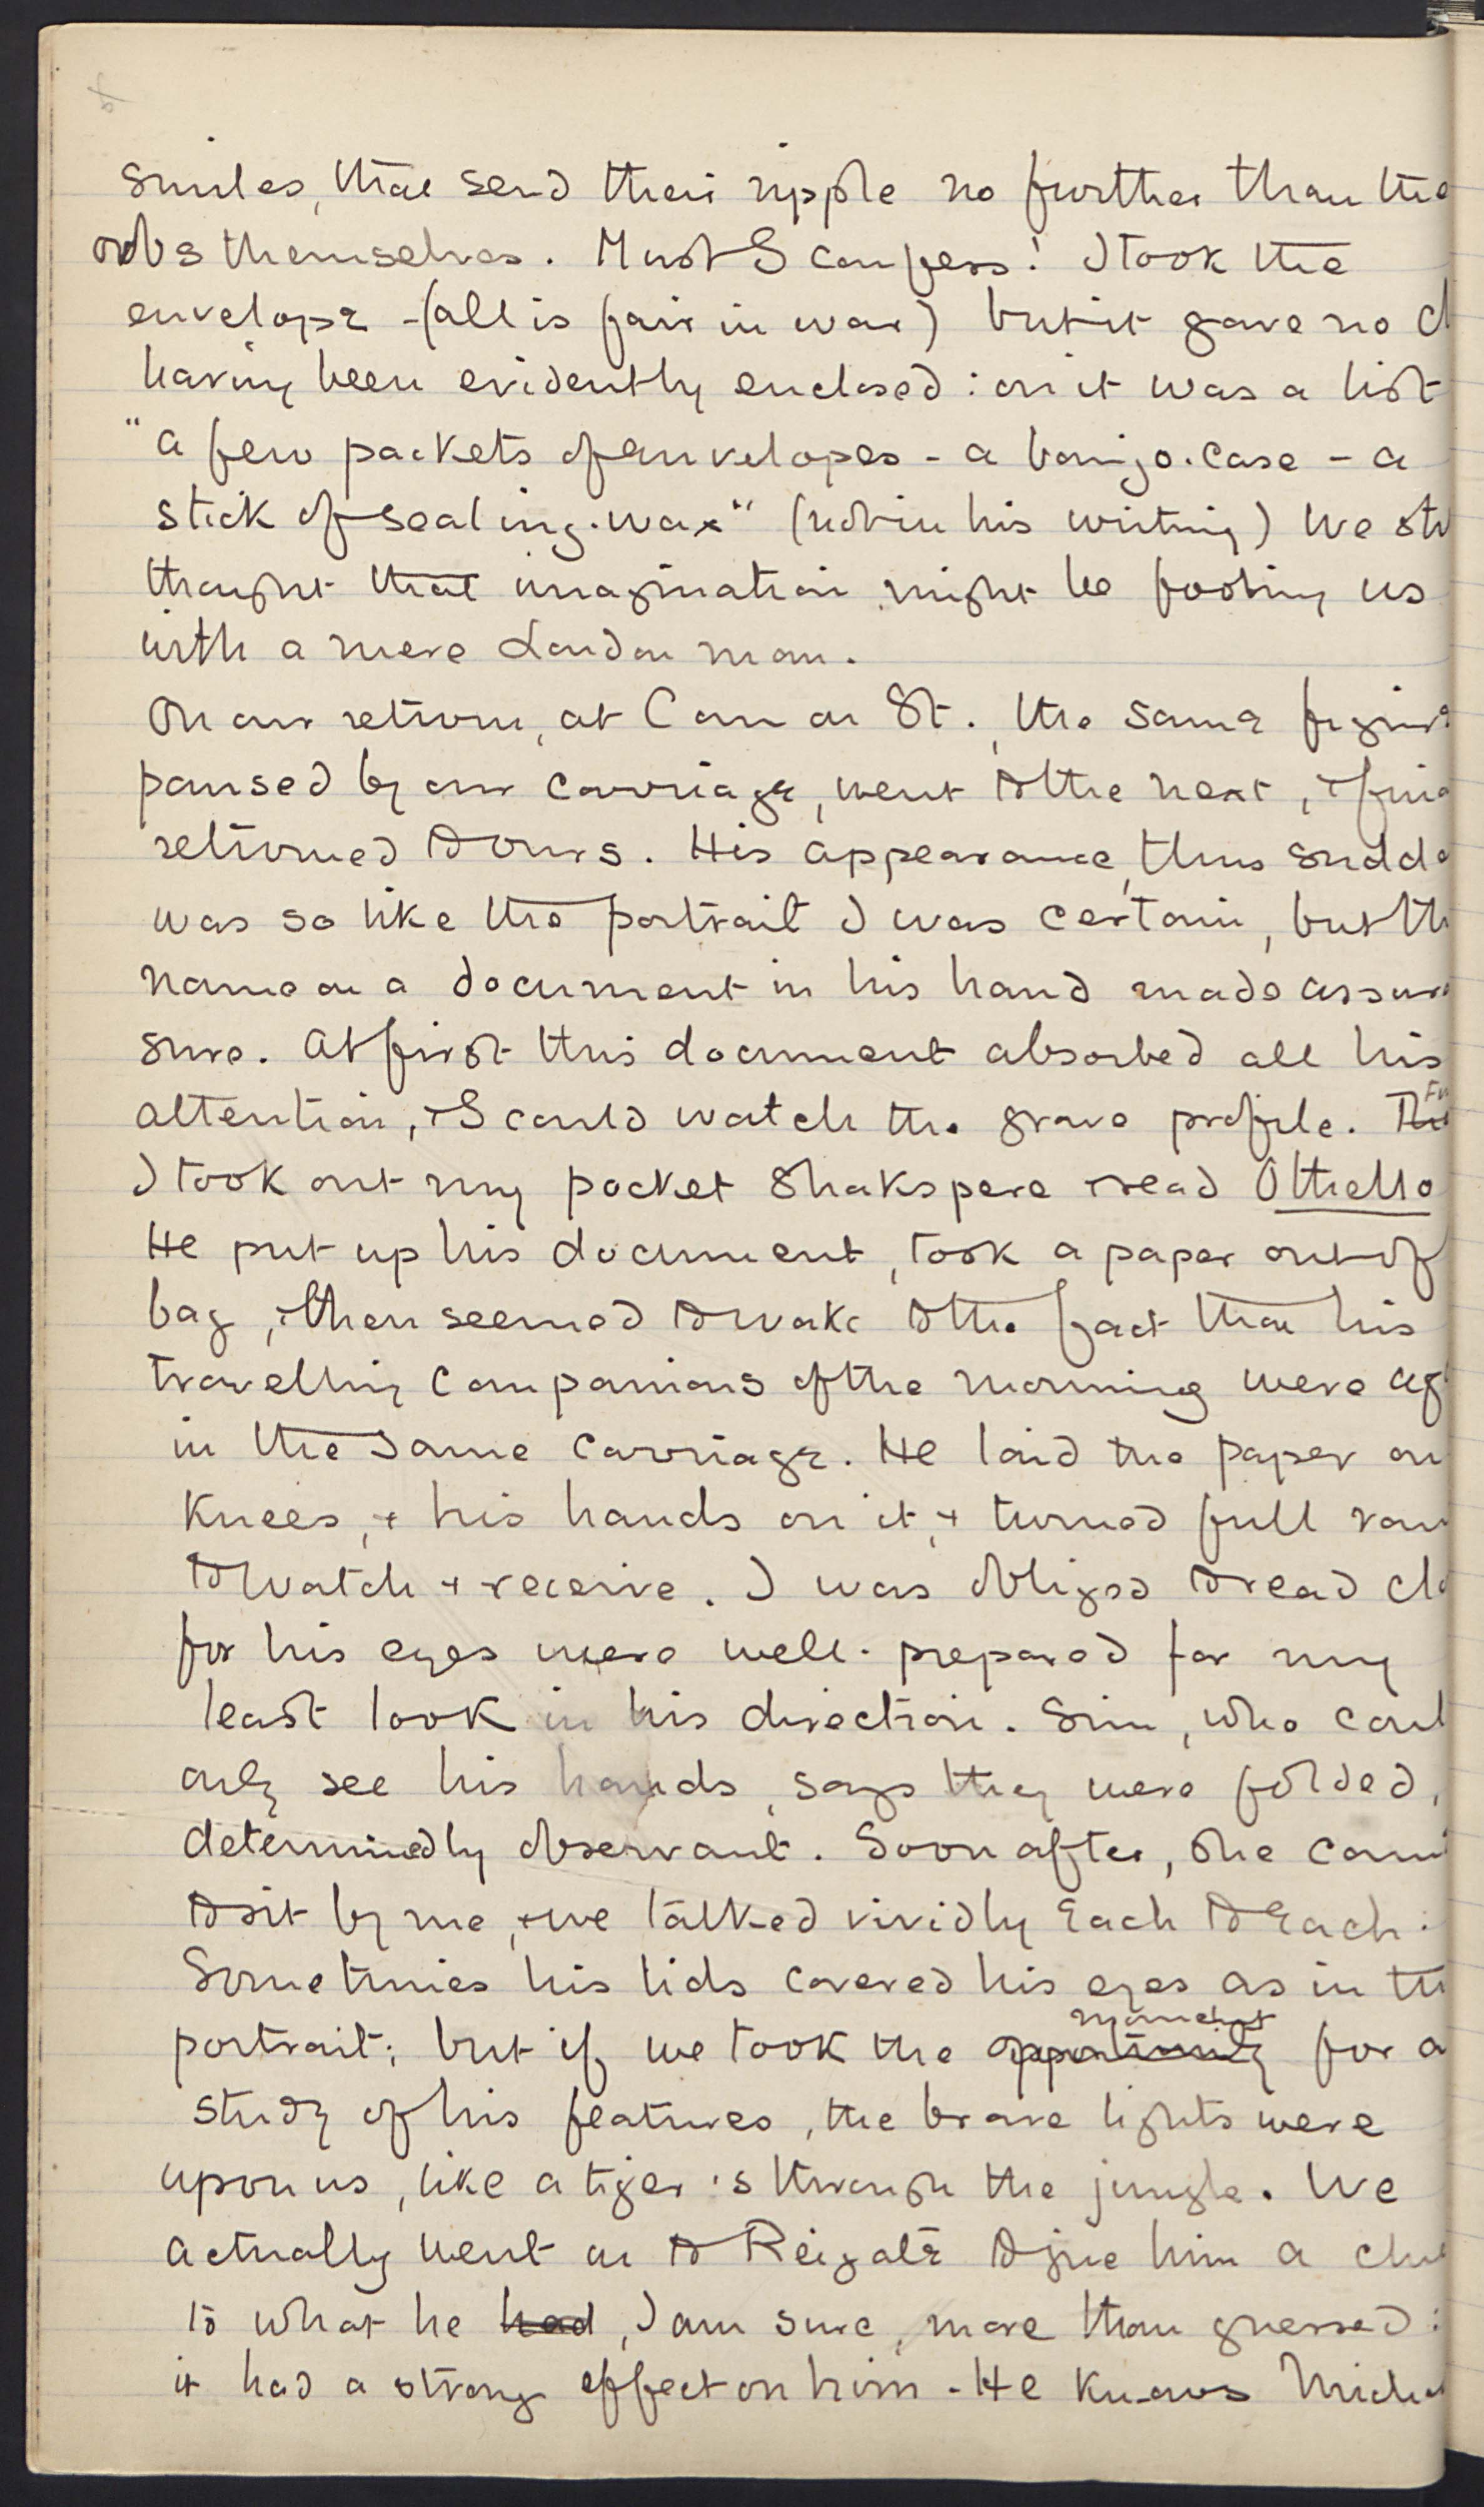 smiles, that send their ripple no further than the
orbs themselves. Must I confess! I took the
envelope - (all is fair in war) but it gave no cl
having been evidently enclosed: on it was a list
"a few packets of envelopes - a banjo-case - a
stick of sealing-wax" (not in his writing) We sti
thought that imagination might be fooling us
with a mere London man.
On our return, at Cannon St., the same figure
paused by our carriage, went to the next, & fina
returned to ours. His appearance, thus sudde
was so like the portrait I was certain, but th
name on a document in his hand made assura
sure. At first this document absorbed all his
attention, & I could watch the grave profile.
I took out my pocket Shakspere & read Othello
He put up his document, took a paper out of
bag, & then seemed to wake to the fact that his
travelling companions of the morning were ag
in the same carriage. He laid the paper on
knees, & his hands on it, & turned full roun
to watch & receive. I was obliged to read clo
for his eyes were well-prepared for my
least look in his direction. Sim, who coul
only see his hands, says they were folded,
determinedly observant. Soon after, she came
to sit by me, & we talked vividly each to each:
Sometimes his lids covered his eyes as in the
portrait; but if we took the opportunity moment for a
study of his features, the brave lights were
upon us, like a tiger's through the jungle. We
actually went on to Reigate to give him a clue
to what he had, I am sure, more than guessed:
it had a strong effect on him - He knows Michae